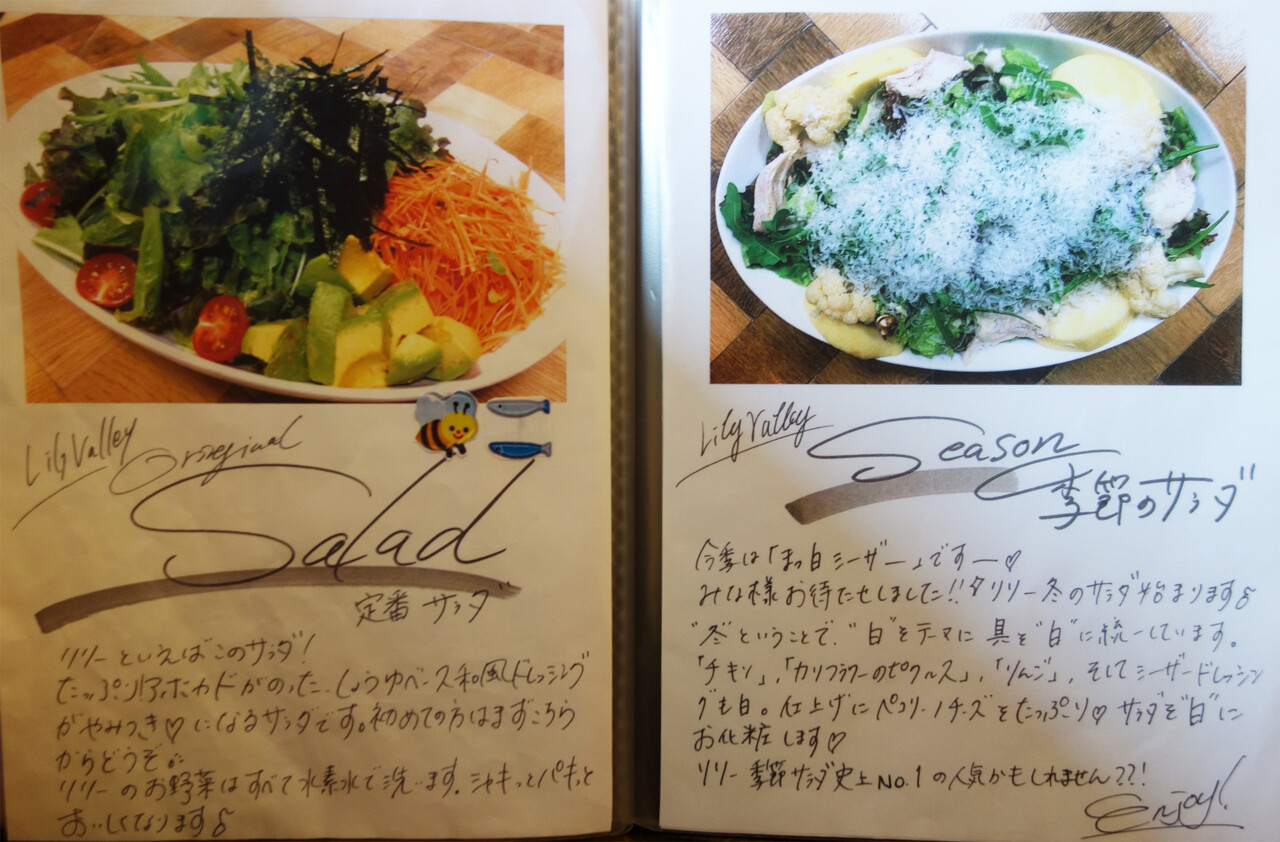 Lily Valley Original
Salad
定番 サラダ
リリーといえばこのサラダ!
たっぷりアボカドがのった、しょうゆベース和風ドレッシング
がやみつき♡になるサラダです。初めての方はまずこちら
からどうぞ。
リリーのお野菜はすべて水素水で洗います。シャキっとパキっと
おいしくなります♪
Lily Valley Season
季節のサラダ
今季は「まっ白シーザー」ですー♡
みな様お待たせしました!! リリー冬のサラダ始まります♪
"冬"ということで、"白"をテーマに 具を"白"に統一しています。
「チキン」,「カリフラワーのピクルス」,「りんご」, そしてシーザードレッシン
グも白。仕上げにペコリーノチーズをたっぷり♡ サラダを"白"に
お化粧します♡
リリー季節サラダ史上No.1の人気かもしれません??!
Enjoy!